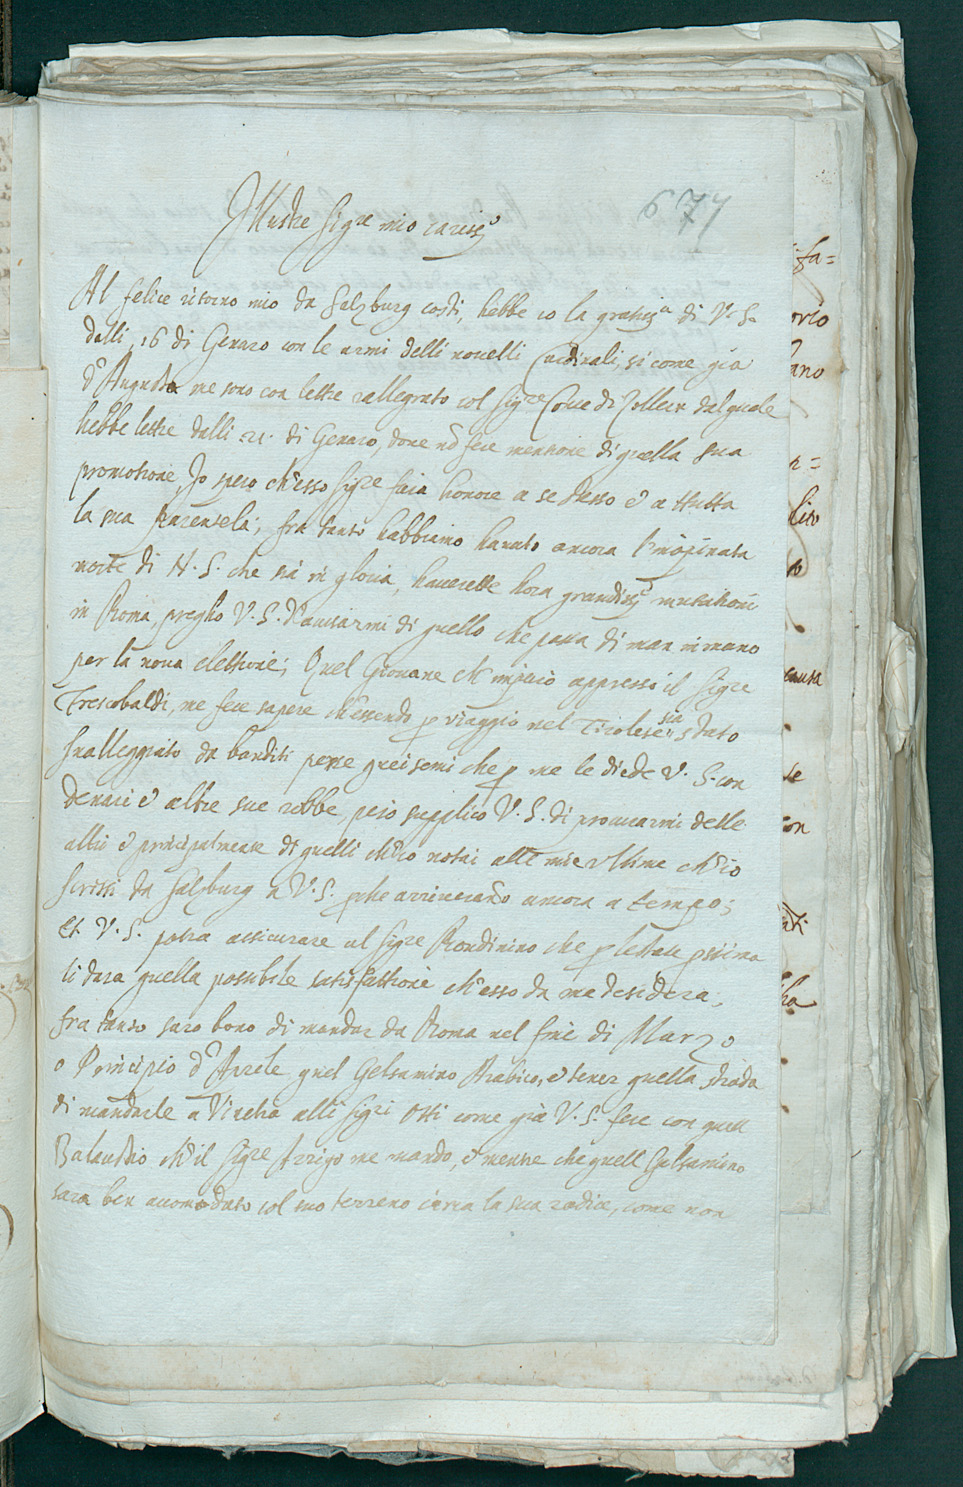 677
Illustre Sigre mio cariss.o
Al felice ritorno mio da Salzburg costi, hebbe io la gratiss.a di V. S.
dalli 16 di Genaro con le armi delli novelli Cardinali, si come già
d'Augusta me sono con lettre rallegrato col Sigre Conte di Zollern dal quale
hebbe lettre dalli 21. di Genaro, dove nō fece mentione di quella sua
promotione, Io spero ch'esso Sigre fara honore a se stesso et a ttutta
la sua Parentela; fra tanto habbiamo havuto ancora l'inopinata
morte di N. S. che sia in gloria, haverette hora grandiss.e mutationi
in Roma, pregho V. S. d'avisarmi di quello che passa di man in mano
per la nova elettione; Quel Giovane ch' appresso il Sigre
Frescobaldi, me fece sapere ch'essendo p viaggio nel Tirolese sia stato
svalleggiato da banditi perse quei semi che p me le diede V. S. con
denari et altre sue robbe, pero supplico V. S. di procurarmi delle
altri et principalmente di quelli ch'io notai alle mie ultime ch'io
scrissi da Salzburg a V. S. pche arriverano ancora a tempo;
Et V. S. potra assicurare al Sigre Rondinino che p l'estate pssima
li dara quella possibile satisfattione ch'esso da me desidera;
fra tanto saro bono di mandar da Roma nel fine di Marzo
o Principio d'Aprile quel Gelsamino Arabico, et tener quella strada
di mandarle a Vinetia alli Sigri Otti come già V. S. fece con quell
Balaustio ch'il Sigre Arrigo me mando, et mentre che quell Gelsamino
sara ben accomodato col suo terreno circa la sua radice, come non
fa=
orio
hano
lito
causa
se
con
ha